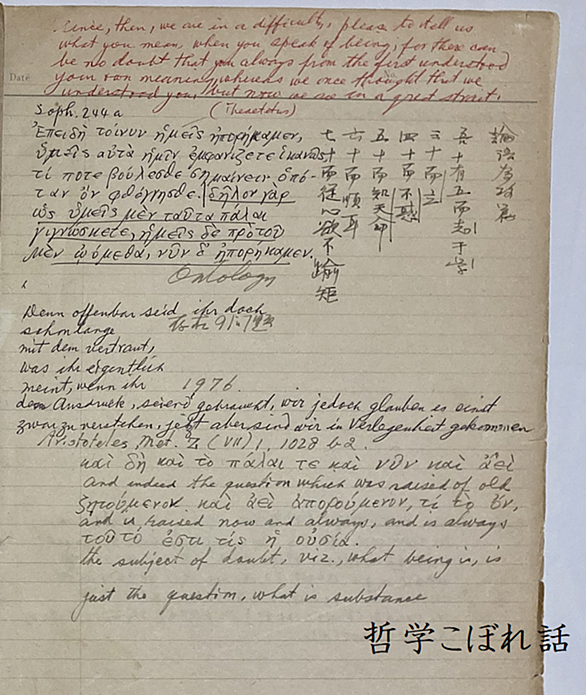 Since, then, we are in a difficulty, please to tell us
what you mean, when you speak of being, for there can
be no doubt that you always from the first understood
Date
your own meaning, whereas we once thought that we
understood you, but now we are in a great strait.
Soph. 244a (Theaetetus)
Ἐπειδὴ τοίνυν ἡμεῖς ἠπορήκαμεν,
ὑμεῖς αὐτὰ ἡμῖν ἐμφανίζετε ἱκανῶς
τί ποτε βούλεσθε σημαίνειν ὁπό-
ταν ὂν φθέγγησθε. δῆλον γὰρ
ὡς ὑμεῖς μὲν ταῦτα πάλαι
γιγνώσκετε, ἡμεῖς δὲ πρὸτοῦ
μὲν ᾠόμεθα, νῦν δ' ἠπορήκαμεν.
Ontology
論語為政篇
吾十有五而志于学
三十而立
四十而不惑
五十而知天命
六十而順耳
七十而従心欲不踰矩
Denn offenbar seid ihr doch
schon lange
mit dem vertraut,
was ihr eigentlich
meint, wenn ihr 1976.
den Ausdruck ‚seiend‘ gebraucht, wir jedoch glauben es einst
zwar zu verstehen, jetzt aber sind wir in Verlegenheit gekommen
Aristoteles, Met. Z (VII) 1, 1028 b2.
καὶ δὴ καὶ τὸ πάλαι τε καὶ νῦν καὶ ἀεὶ
And indeed the question which was raised of old
ζητούμενον καὶ ἀεὶ ἀπορούμενον, τί τὸ ὄν,
and is raised now and always, and is always
τοῦτό ἐστι τίς ἡ οὐσία.
the subject of doubt, viz., what being is, is
just the question, what is substance
哲学こぼれ話